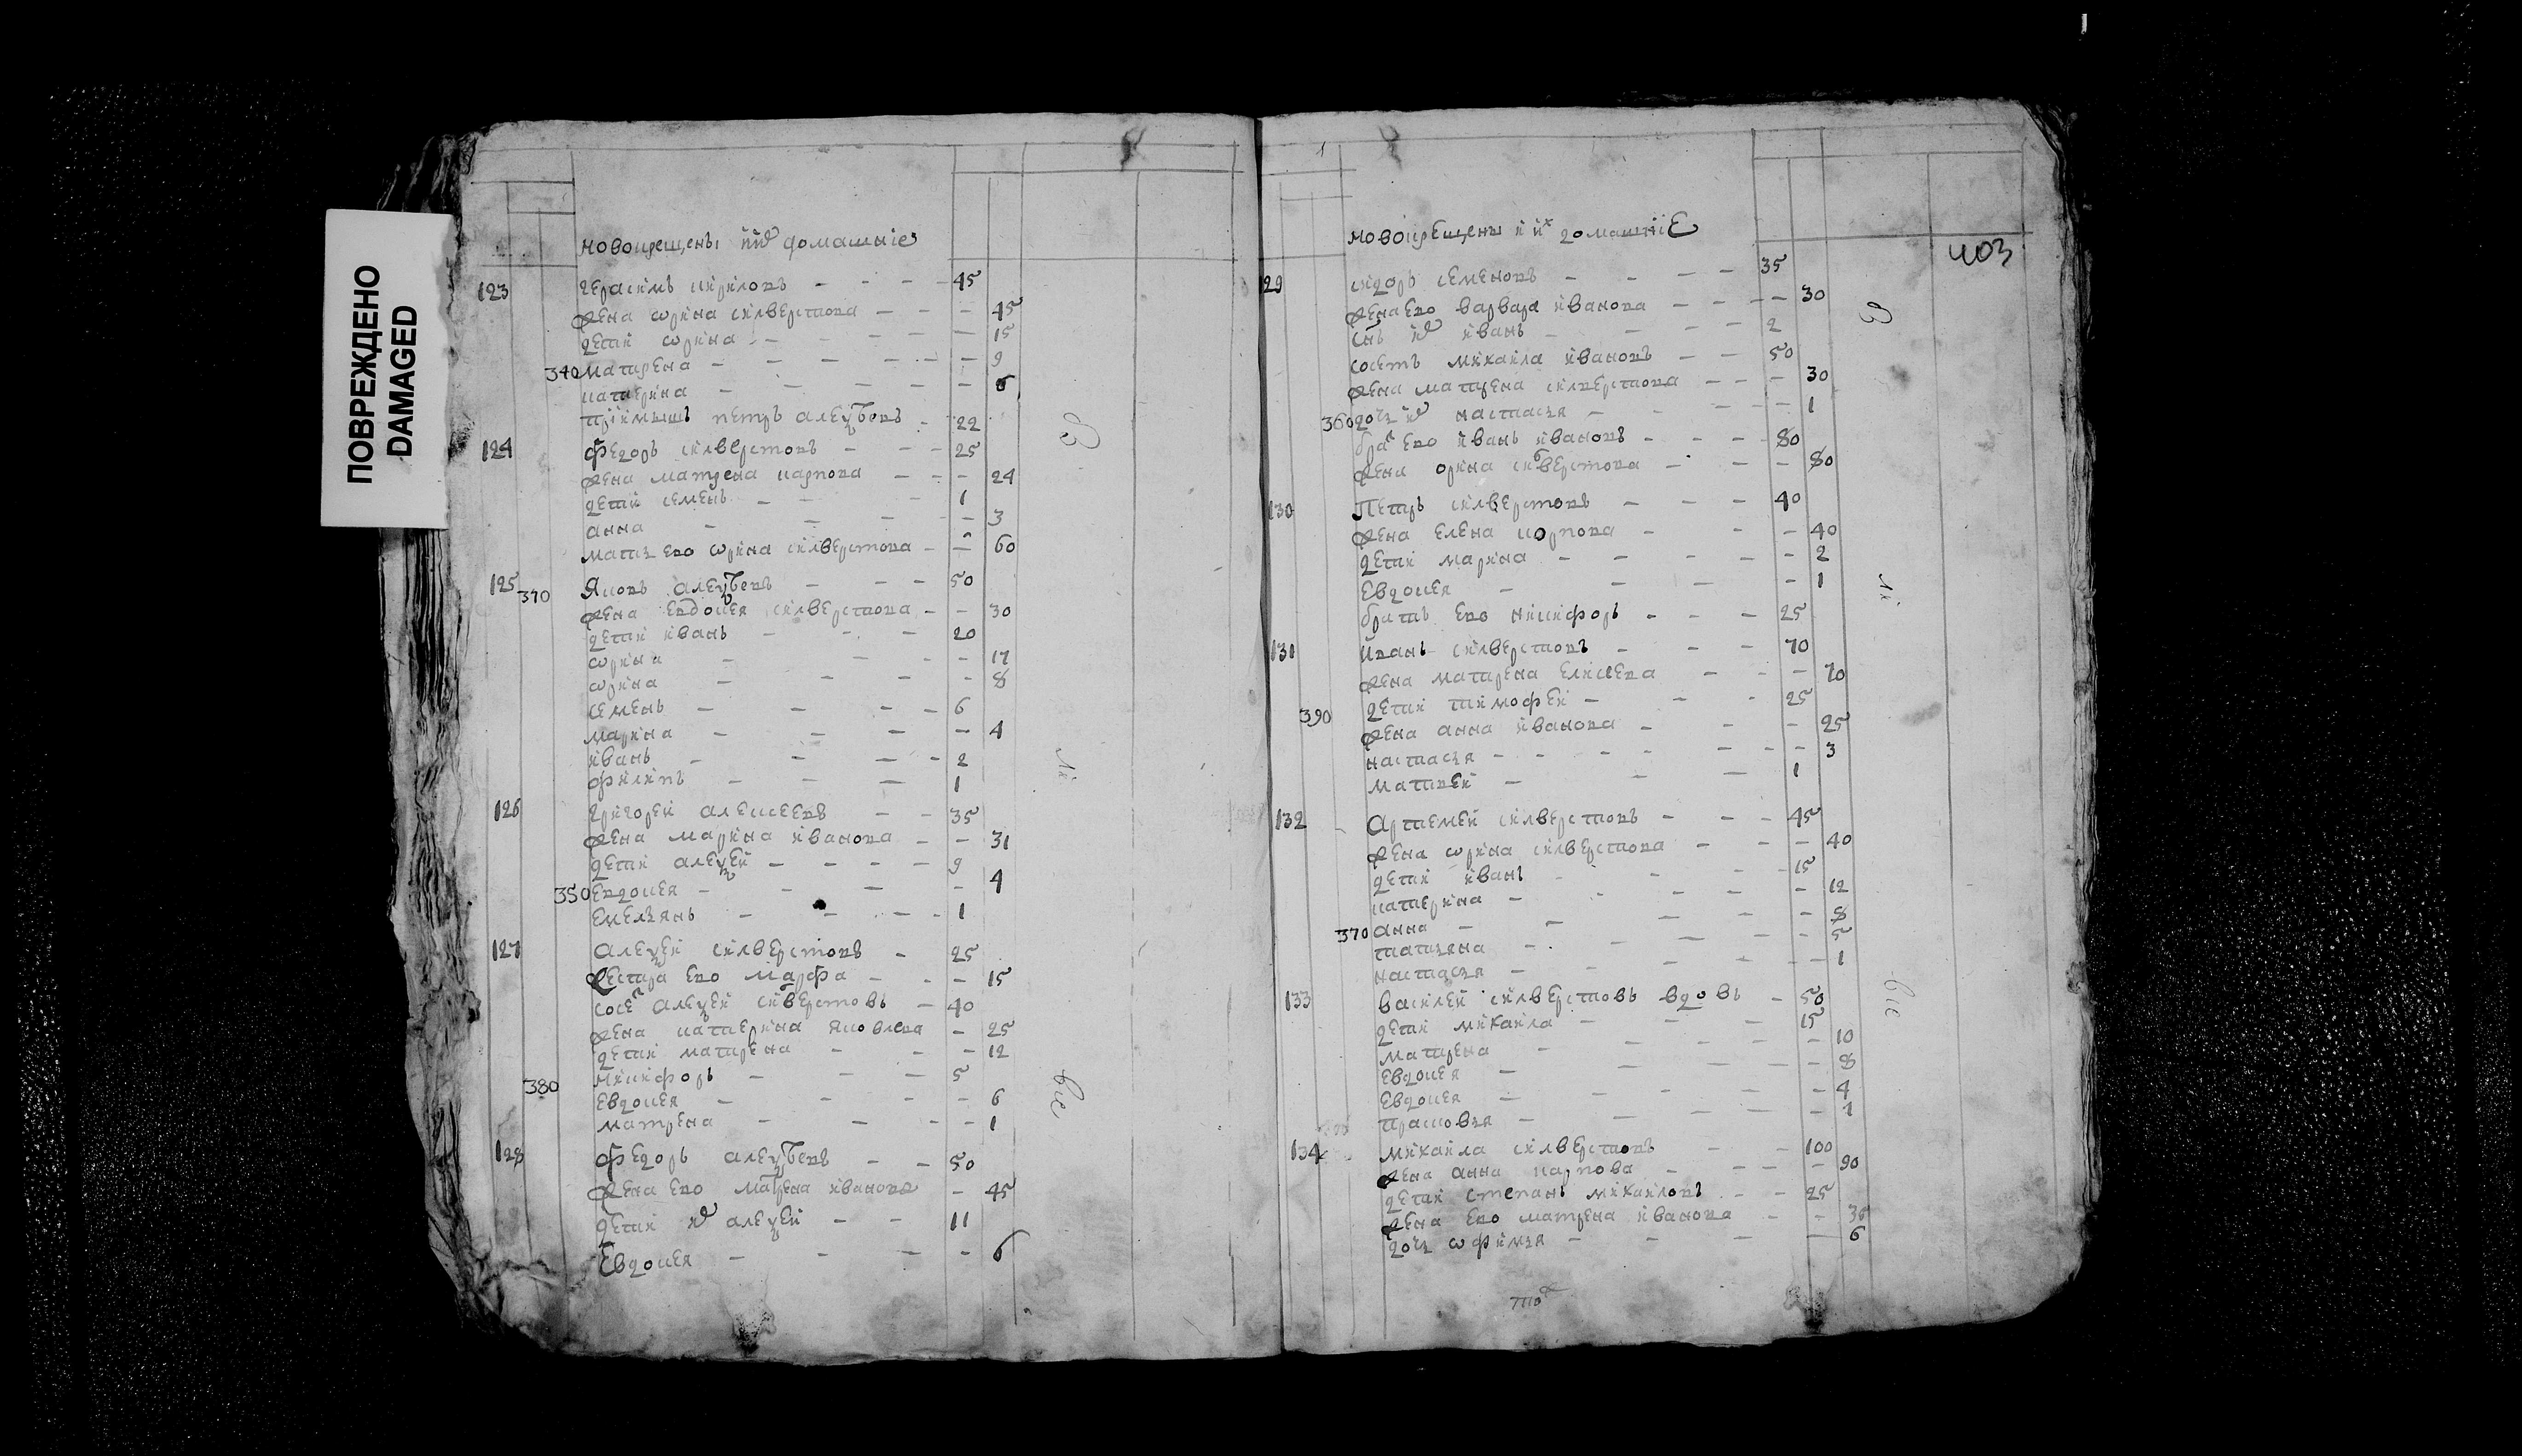 ПОВРЕЖДЕНО
DAMAGED
новокрещены и их домашние
123 герасимъ кириловъ 45
жена ѡрина силверстова 45
дети ѡрина 15
340 матрена 9
катерина 6
приимышъ петръ алеѯѣевъ 22
124 федоръ силверстовъ 25
жена матрена карпова 24
дети семенъ 1
анна 3
мать ево ѡрина силверстова 60
125 370 Яковъ алеѯѣевъ 50
жена евдокея силверстова 30
дети иванъ 20
ѡрина 17
ѡрина 8
семенъ 6
марина 4
иванъ 2
филипъ 1
126 григореи алексеевъ 35
жена марина иванова 31
дети алеѯеи 9
350 евдокея 4
емельянъ 1
127 алеѯеи силверстовъ 25
сестра ево марфа 15
сосе алеѯеи силверстовъ 40
жена катерина яковлева 25
дети матрена 12
380 никифоръ 5
евдокея 6
матрена 1
128 федоръ алеѯѣевъ 50
жена ево матрена иванова 45
дети их алеѯеи 11
Евдокея 6
403
новокрещены и их домашние
29 сидоръ семеновъ 35
жена ево варвара иванова 30
снъ их иванъ 2
сосетъ михаила ивановъ 50
жена матрена силверстова 30
360 дочь их настасья 1
бра ево иванъ ивановъ 80
жена орина силверстова 80
130 Петръ силверстовъ 40
жена елена карпова 40
дети марина 2
евдокея 1
братъ ево никифоръ 25
131 Иванъ силверстовъ 70
жена матрена елисеева 70
390 дети тимофеи 25
жена анна иванова 25
настасья 3
матвеи 1
132 Артемеи силверстовъ 45
жена ѡрина силверстова 40
дети иванъ 15
катерина 12
370 анна 8
татьяна 5
настасья 1
133 василеи силверстовъ вдовъ 50
дети михаила 15
матрена 10
евдокея 8
евдокея 4
прасковья 1
134 михаила силверстовъ 100
жена анна карпова 90
дети степанъ михаиловъ 25
жена ево матрена иванова 36
дочь ѡфимья 6